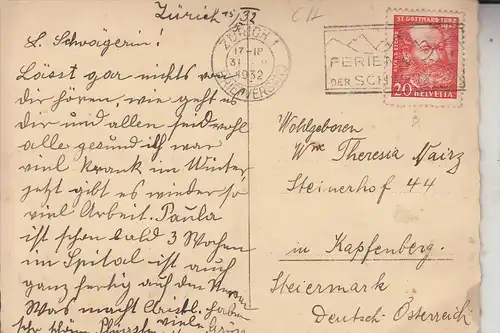 Zürich 15/32
CH
L. Schwägerin!
Lässt gar nichts von
dir hören, wie geht es
dir und allen seid wohl
alle gesund ich war
viel krank im Winter,
jetzt gibt es wieder so
viel Arbeit. Paula
ist schon bald 3 Wochen
im Spital ist auch
ganz fertig auf den
Was macht haben
viele
ZÜRICH 1
17-18
1932
FERIEN
DER SCH
ST. GOTTHARD 1882
20 HELVETIA
Wohlgeboren
Wwe Theresia Nairz
Steinerhof 44
in Kapfenberg.
Steiermark
Deutsch-Österreich